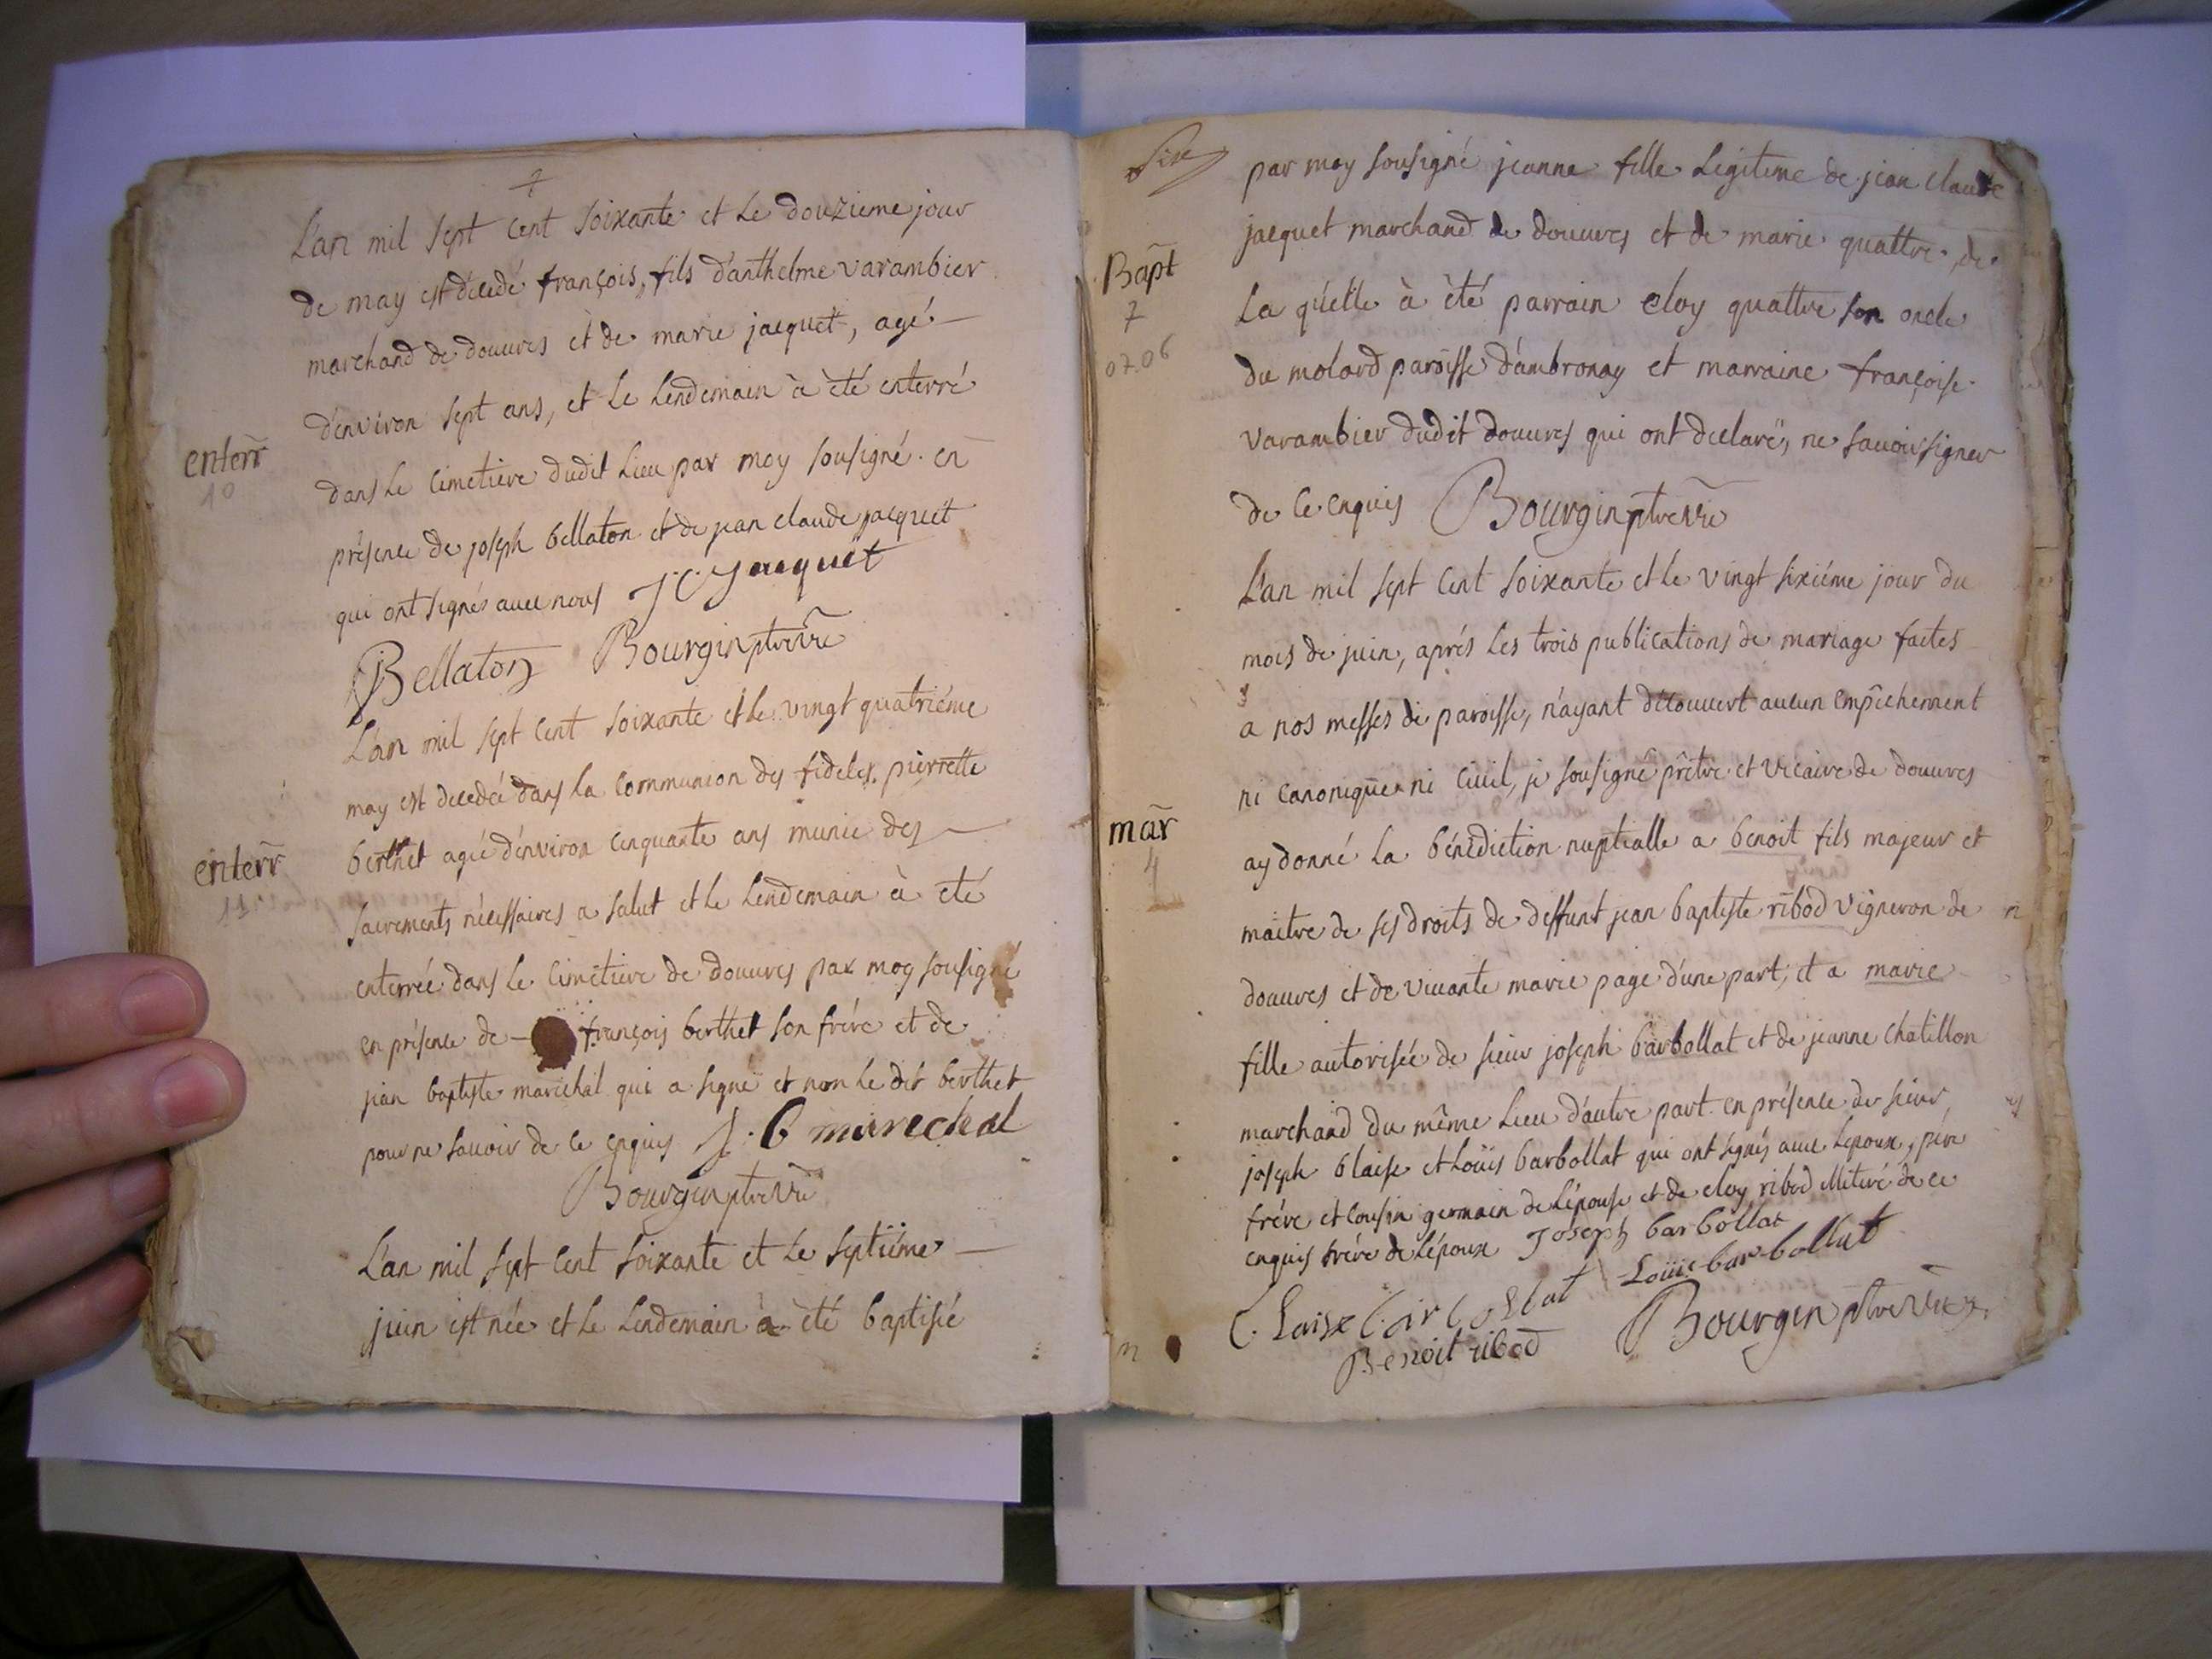 L'an mil sept cent soixante et le douzieme jour
de may est décedé françois, fils d'anthelme varambier
marchand de douures et de marie jacquet, agé
d'environ sept ans, et le lendemain à èté enterré
enterr̃
10
dans le cimetiere dudit lieu par moy sousigné. en
présence de joseph bellaton et de jean claude jacquet
qui ont signés auec nous J C Jacquet
Bellaton Bourgin ptre vire
L'an mil sept cent soixante et le vingt quatriéme
may est decedée dans la communion des fideles. pierrette
berthet agée d'environ cinquante ans munie des
enterr̃
11
sacrements nécessaires a salut et le lendemain à eté
enterrée dans le cimetiere de douures par moy sousigné
en présence de françois berthet son frére et de
jean baptiste maréchal qui a signé et non le dit berthet
pour ne sauoir de ce enquis J. b marechal
Bourgin ptre vire
L'an mil sept cent soixante et le septiéme
juin est née et le lendemain à èté baptisée
par moy sousigné jeanne fille légitime de jean claude
jacquet marchand de douures et de marie quattre, de
Bapt
7
07.06
la quelle à èté parrain eloy quattre son oncle
du molard paroisse d'ambronay et marraine françoise
varambier dudit douures qui ont declaré, ne sauoir signer
de ce enquis Bourgin ptre vire
L'an mil sept cent soixante et le vingt sixiéme jour du
mois de juin, aprés les trois publications de mariage faites
a nos messes de paroisse, n'ayant découuert aucun empêchement
ni canonique ni ciuil, je sousigné prêtre et vicaire de douures
mar̃
4
ay donné la bénédiction nuptialle a benoit fils majeur et
maitre de ses droits de deffunt jean baptiste ribod vigneron de
douures et de viuante marie page d'une part, et a marie
fille autorisée de sieur joseph barbollat et de jeanne chatillon
marchand du même lieu d'autre part. en présence de sieur
joseph blaise et loüis barbollat qui ont signés auec lepoux, père
frére et cousin germain de l'épouse et de eloy ribod illiteré de ce
enquis frére de l'époux Joseph barbollat
Loüis barbollat
b. Laise barbollat
Benoit ribod Bourgin ptre vire